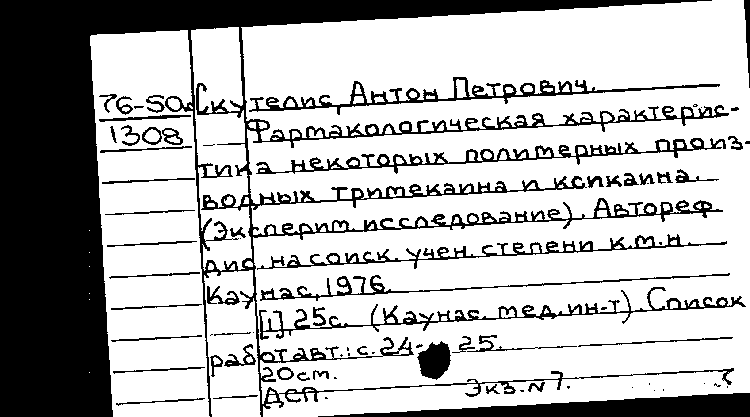 76-50а Скутелис, Антон Петрович.
1308 Фармакологическая характерис-
тика некоторых полимерных произ-
водных тримекаина и ксикаина.
(Эксперим. исследование). Автореф.
дис. на соиск. учен. степени к.м.н.
Каунас, 1976.
[1], 25с. (Каунас. мед. ин-т). Список
работ авт.: с. 24-25.
20см.
ДСП. Экз. N 7.